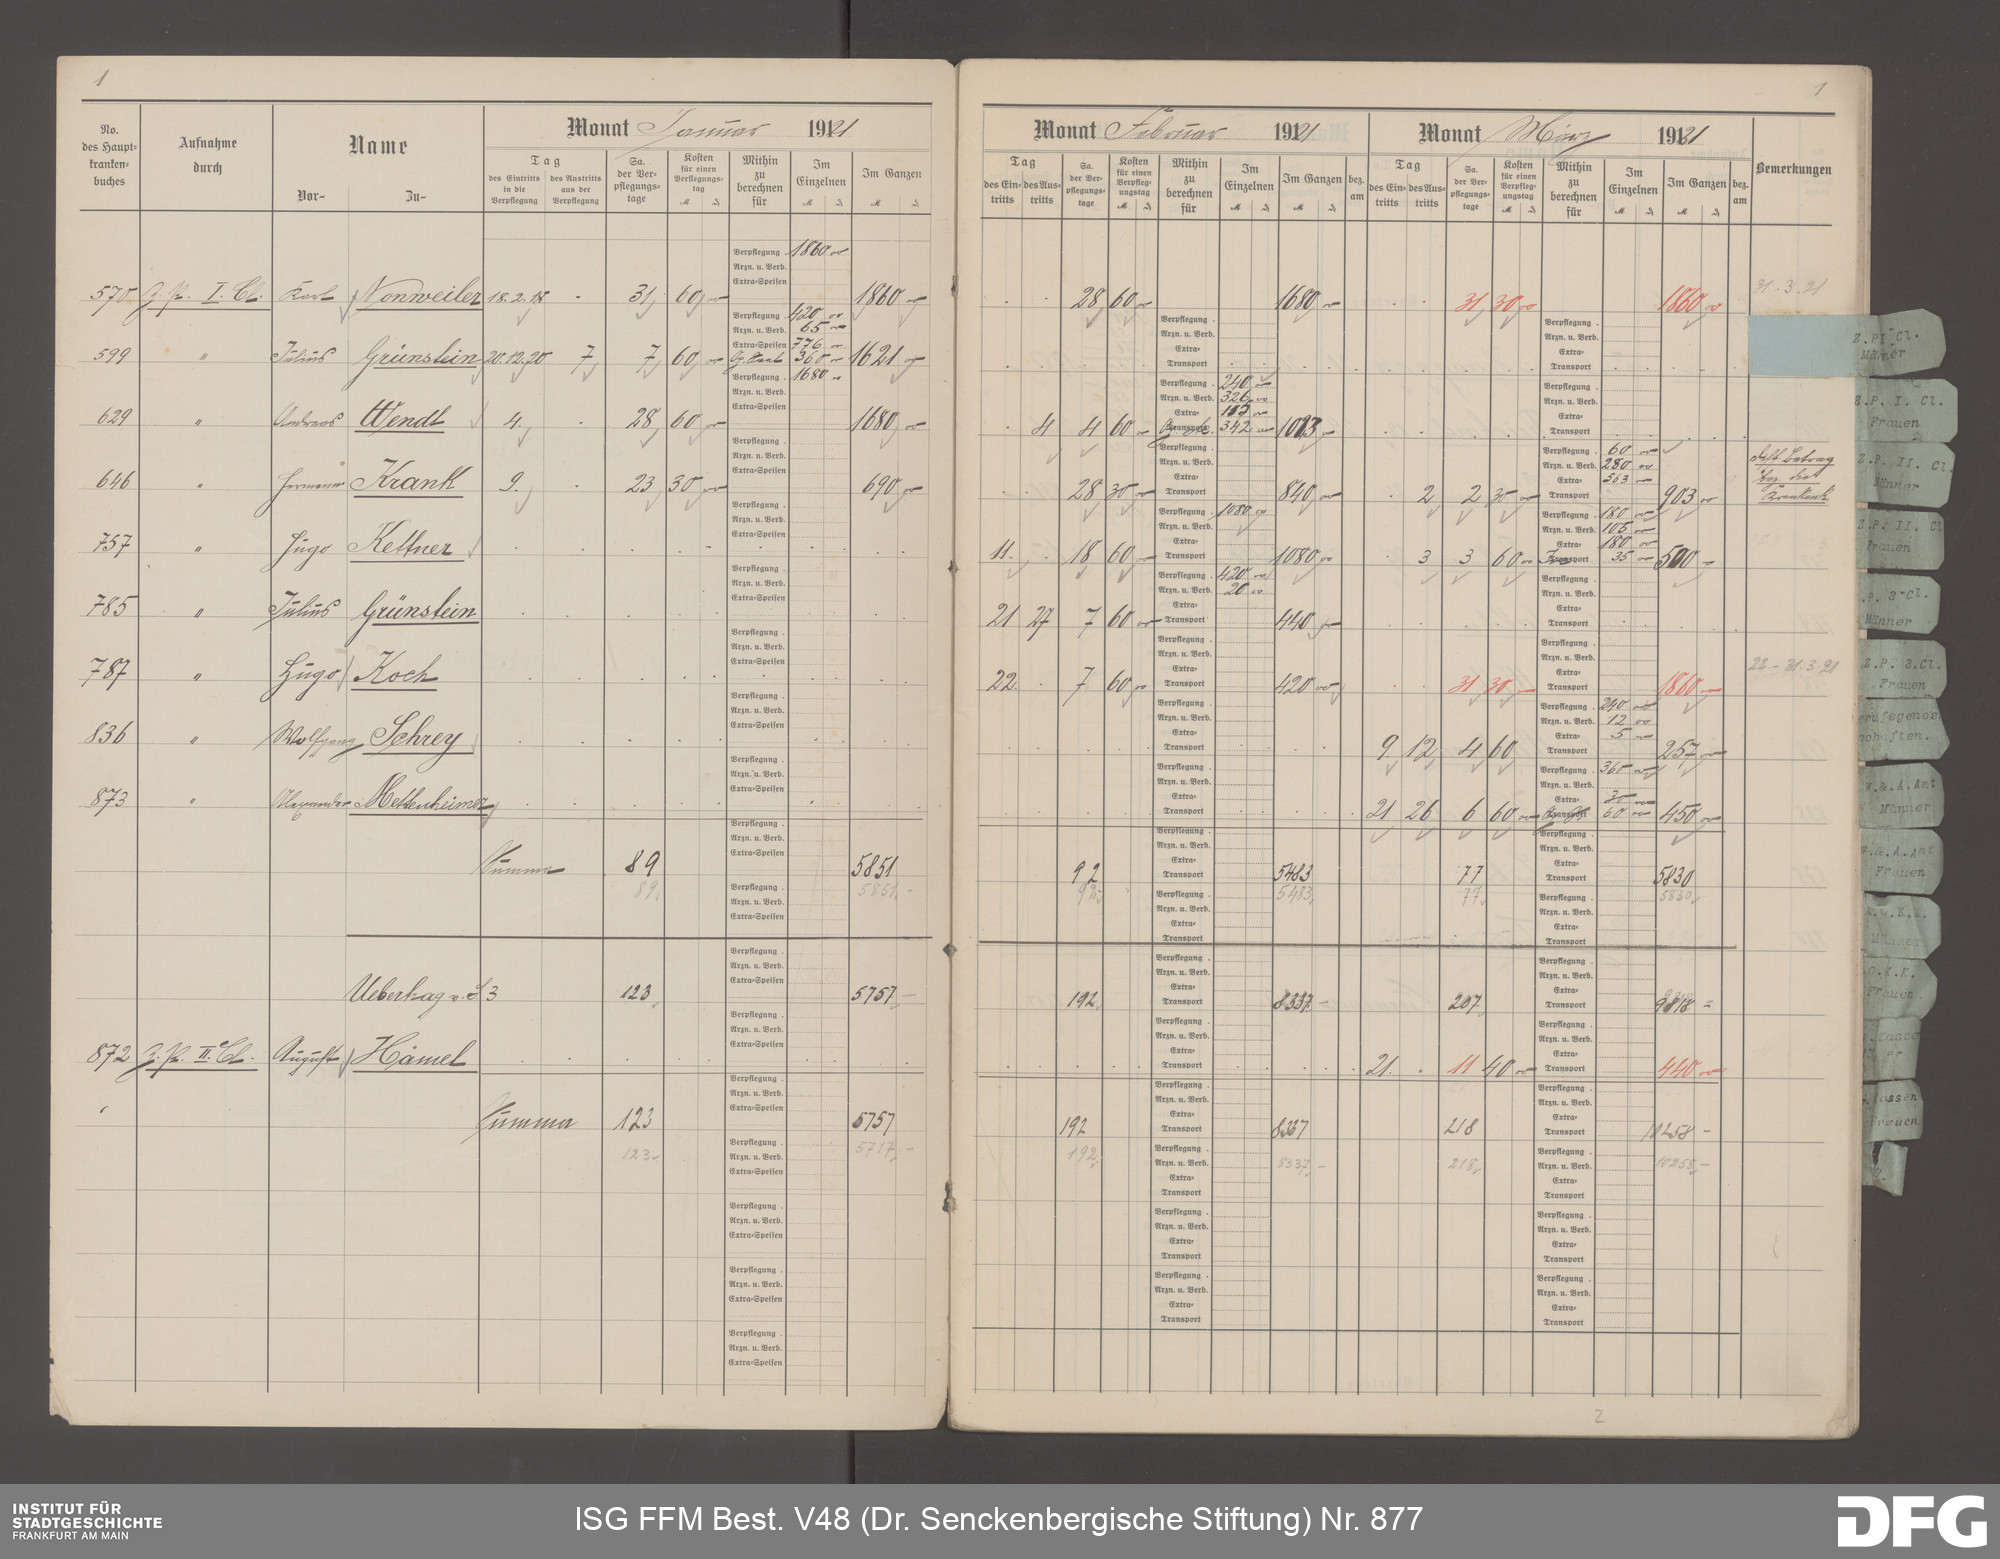 1
No. des Haupt=kranken=buches
Aufnahme durch
Name
Vor= Zu=
Monat Januar 1921
Tag
des Eintritts in die Verpflegung
des Austritts aus der Verpflegung
Sa. der Ver=pflegungs=tage
Kosten für einen Verpflegungs=tag
Mithin zu berechnen für
Im Einzelnen
Im Ganzen
570 Z. P. I. Cl. Karl Nonweiler 18.2.18 31 60 Verpflegung 1860 1860
599 " Julius Grünstein 20.12.20 7 7 60 420 65 776 360 1621
629 " Andreas Wendt 4. 28 60 1680 1680
646 " Hermann Krank 9. 23 30 690
757 " Hugo Kettner
785 " Julius Grünstein
787 " Hugo Koch
836 " Wolfgang Schrey
873 " Alexander Mettenheimer
Summa 89 5851
89 5851
Uebertrag v. S 3 123 5757
872 Z. P. II. Cl. August Hämel
Summa 123 5757
123 5717
Verpflegung
Arzn. u. Verb.
Extra=Speisen
1
Monat Februar 1921
Tag
des Ein=tritts
des Aus=tritts
Sa. der Ver=pflegungs=tage
Kosten für einen Verpfleg=ungstag
Mithin zu berechnen für
Im Einzelnen
Im Ganzen
bez. am
Monat März 1921
Tag
des Ein=tritts
des Aus=tritts
Sa. der Ver=pflegungs=tage
Kosten für einen Verpfleg=ungstag
Mithin zu berechnen für
Im Einzelnen
Im Ganzen
bez. am
Bemerkungen
28 60 1680 31 30 1860 31.3.21
4 4 60 240 326 342 1013
28 30 840 2 2 30 60 280 563 903
11. 18 60 1080 1080 3 3 60 180 105 180 35 500
21 27 7 60 420 20 440
22. 7 60 420 31 30 1860 22.-31.3.21
9. 12 4 60 240 12 5 257
21 26 6 60 360 30 60 450
92 5483 77 5830
92 5483 77 5830
192 8337 207 9818
21. 11 40 440
192 8337 218 10258
192 8337 218 10258
Verpflegung
Arzn. u. Verb.
Extra=
Transport
2
Z.PI Cl. Mäner
Z.P. I. Cl. Frauen
Z.P. II. Cl. Männer
Z.P. II. Cl Frauen
.P. 3 Cl. Männer
Z.P. 3.Cl. Frauen
W.&.A.Amt Männer
W.&.A.Amt Frauen
.O.K.K. Männer
.O.K.K. Frauen
INSTITUT FÜR
STADTGESCHICHTE
FRANKFURT AM MAIN
ISG FFM Best. V48 (Dr. Senckenbergische Stiftung) Nr. 877
DFG